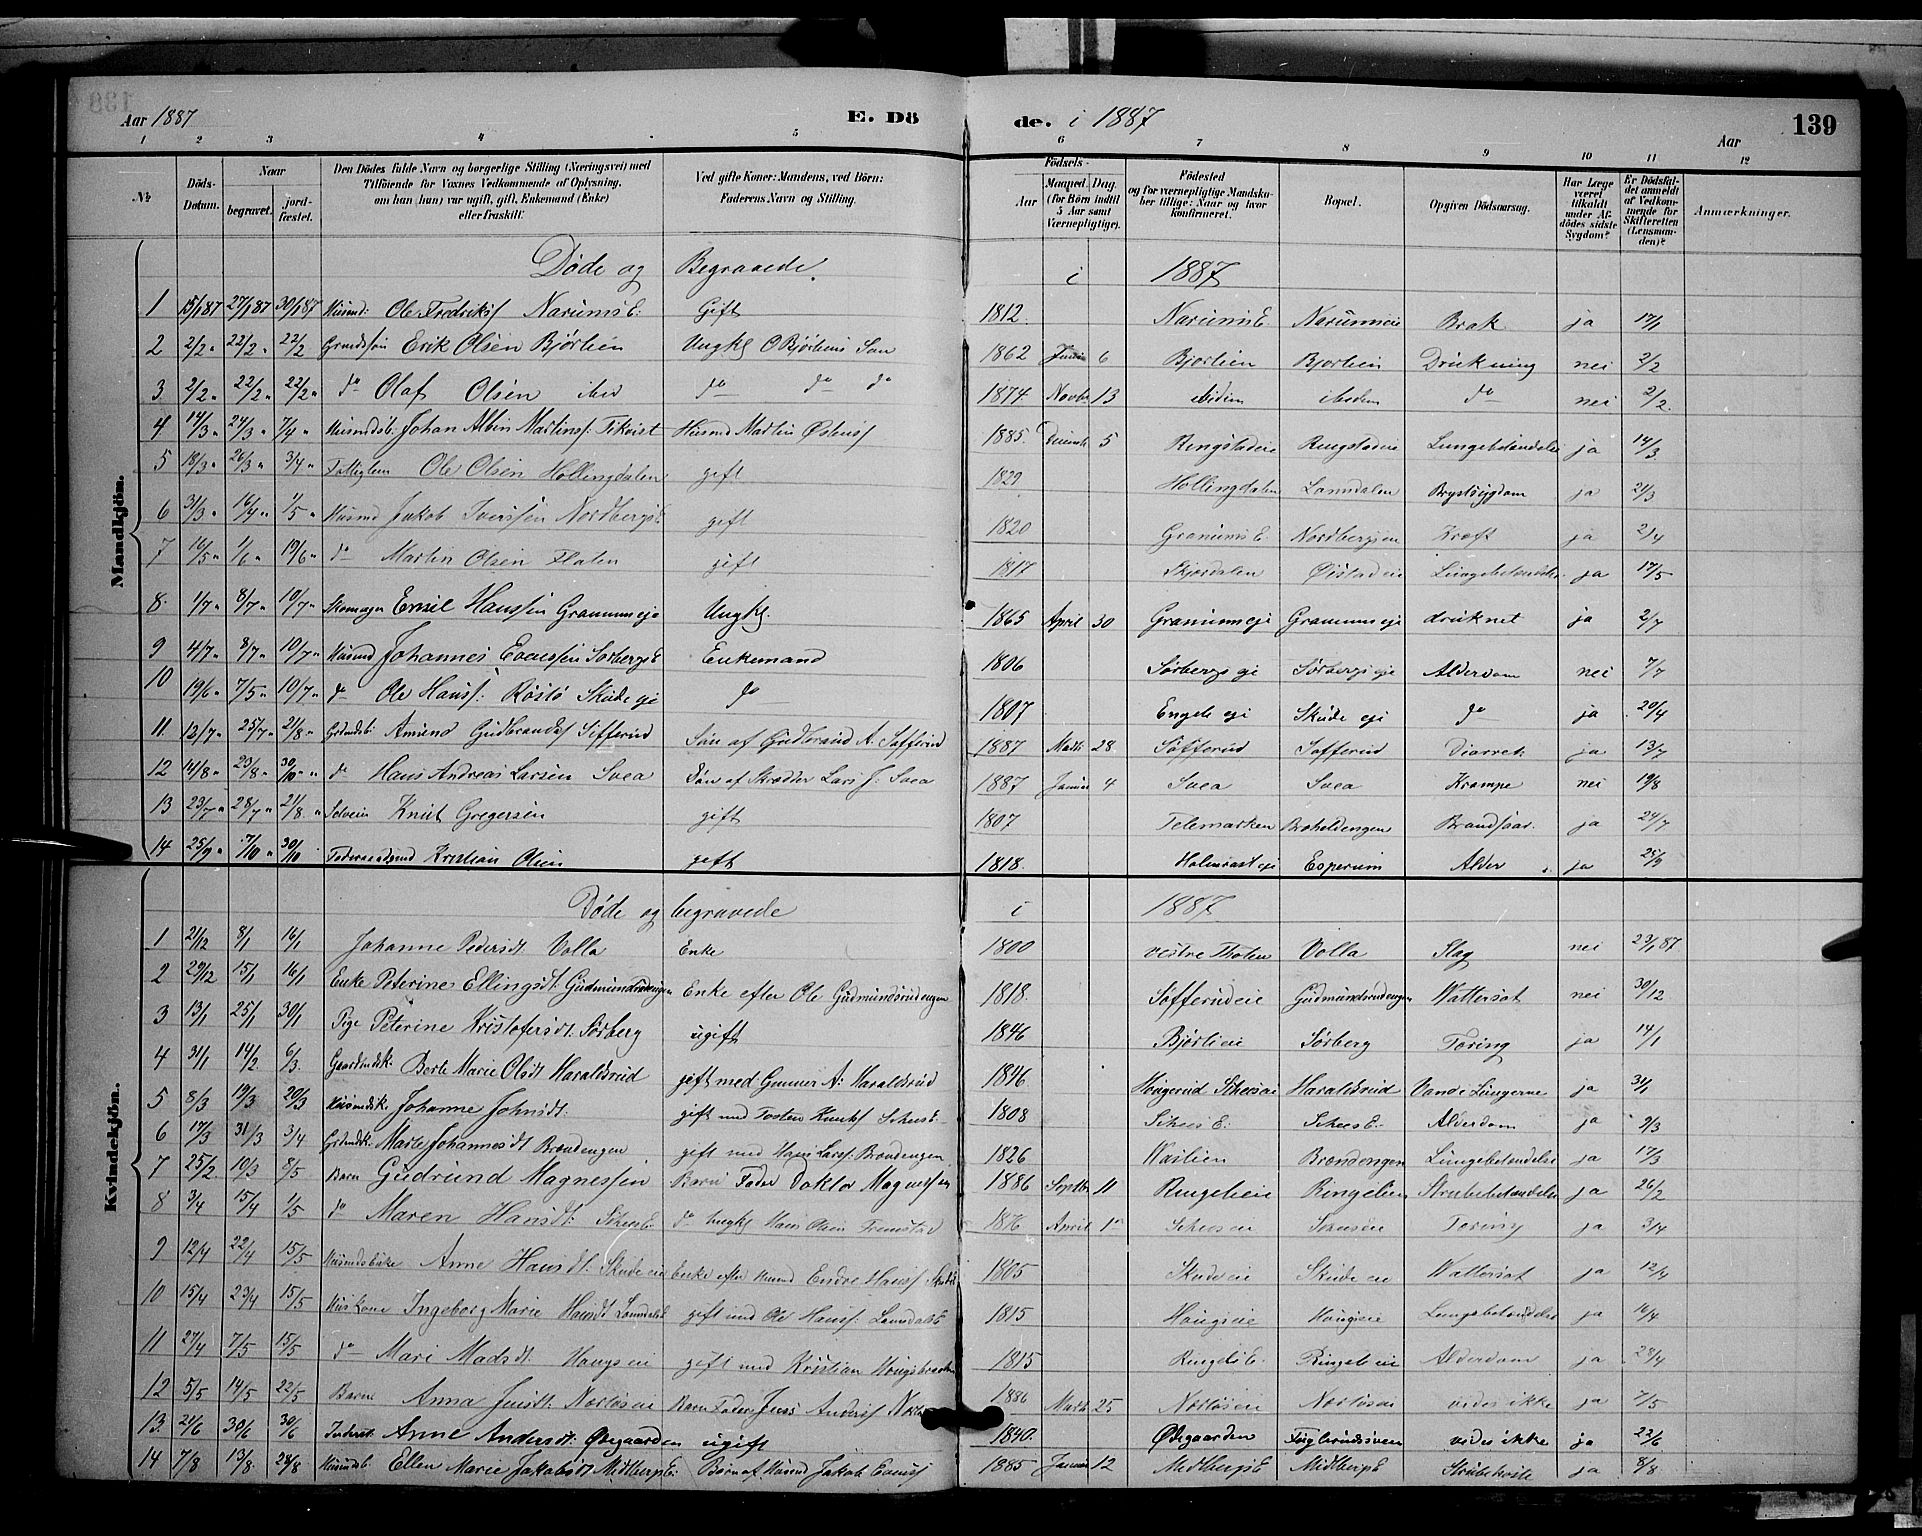 Aar 1887 E. Dö de. i 1887 Aar 139
1 2 3 4 5 6 7 8 9 10 11 12
No. Döds-Datum. Naar begravet. jordfæstet. Den Dödes fulde Navn og borgerlige Stilling (Næringsvei) med Tilföiende for Voxnes Vedkommende af Oplysning, om han (hun) var ugift, gift, Enkemand (Enke) eller fraskilt. Ved gifte Koner: Mandens, ved Börn: Faderens Navn og Stilling. Födsels- Aar Maaned. Dag. (for Börn indtil 5 Aar samt Værnepligtige). Födested og for værnepligtige Mandskaber tillige: Naar og hvor konfirmeret. Bopæl. Opgiven Dödsaarsag. Har Læge været tilkaldt under Afdödes sidste Sygdom? Er Dödsfaldet anmeldt af Vedkommende for Skifteretten (Lensmanden)? Anmærkninger.
Mandkjön.
Døde og Begravede. i 1887
1 15/1 87 27/1 87 30/1 87 Husmd: Ole Fredriks/ NarumsE: Gift 1812. NarumsE. Narumseie Brok ja 17/1
2 2/2 " 22/2 " 22/2 Grmdssøn Erik Olsen Bjørlien Ungkl O Bjørliens Søn 1862 Juni 6 Bjørlien Bjørlien Drukning nei 2/2
3 2/2 " 22/2 " 22/2 " do Olaf Olsen ibid do do do 1874 Novbr 13 ibidem ibidem do nei 2/2.
4 14/3 " 24/3 " 7/4 " Husmdsb. Johan Albin Martins/: Tikvist Husmd Martin Østens/ 1885. 5 Ringstadeie Ringstadeie Lungebetændelse ja 14/3
5 18/3 " 26/3 " 3/4 " Fattiglem Ole Olsen Hollingdalen gift 1829 Hollingdalen Landalen Brystsygdom ja 21/3
6 31/3 " 16/4 " 1/5 " Husmd Jakob Iverssen NordbergsE. gift 1820 GranumsE. Nordbergseie Kræft ja 2/4
7 16/5 " 1/6 " 19/6 " do Martin Olsen Flaten gift 1817 Skjerdalen Øistadeie Lungebetændelse ja 17/5
8. 1/7 " 8/7 " 10/7 " Skomager Emil Hanssen Granumseje Ungkl. 1865 April 30 Granumseje Granumseje druknet ja 2/7
9 4/7 " 8/7 " 10/7 " Husmd Johannes Evenssen SørbergsE Enkemand 1806 Sørbergseje Sørbergseje Alderdom nei 7/7
10 19/6 " 7/5 " 10/7 " do Ole Hans/: Røstø Skudeeje do 1807 Engeleje Skudeeje do ja 20/4
11 12/7 " 25/7 " 21/8 " Grdmdsb: Amund Gudbrands/ Søfferud Søn af Gudbrand A. Søfferud 1887 Marts 28 Søfferud Søfferud Diarreé ja 13/7
12 14/8 " 23/8 " 30/10 " do Hans Andreas Larsen Svea Søn af Skrædder Lars /: Svea 1887 Januar 4 Svea Svea Krampe nei 19/8
13 23/7 " 28/7 " 21/8. " Selveier Knut Gregersen gift 1807 Telemarken Broholdengen Brandsaar. ja 24/7
14 25/9 " 7/10 " 30/10 Føderaadsmd Kristian Olsen gift 1818. Holmrasteje Esperum Alder ja 28/9
Kvindekjön.
Døde og begravede i 1887
1 21/12 8/1 16/1 Johanne Pedersdt. Volla Enke 1800 vestre Thoten Volla Slag nei 23/1 87
2 29/12 15/1 16/1 Enke Peterine Ellingsdt. Gudmundsrudengen Enke efter Ole Gudmundsrudengen 1818. Søfferudeie Gudmundsrudengen Wattersot nei 30/12
3 13/1 25/1 30/1 Pige Peterine Kristofersdt. Sørberg ugift 1846 Bjørlieie Sørberg Tæring ja 14/1
4 31/1 14/2 6/3. Gaardmdsk: Berte Marie Olsdt Haraldsrud gift med Gunner A: Haraldsrud 1846 Hougerud Haraldsrud Vand i Lungerne ja 3/1
5 8/3 19/3 20/3 Husmdsk Johanne Johnsdt. gift med Tosten Knuts/ SkeesE. 1808 SkeesE. SkeesE. Alderdom ja 9/3
6 17/3 31/3 3/4 Grdmdsk: Marte Johannesdt Brændengen gift med Hans Lars/: Brændengen 1826 Waslien Brændengen Lungebetændelse ja 17/3
7 25/2 10/3 8/5 Barn Gudrund Magnessen Barn Fader Doktor Magnessen 1886 Septbr 11 Ringelieie Ringelien Strubebetændelse ja 26/2
8 3/4 15/4 1/5 do Maren Hansdt. SkeesE. do Ungkl Hans Olsen Fremstad 1876 April 1 Skeeseie Skeeseie Tæring ja 3/4
9 12/4 22/4 15/5 Husmdsenke Anne Hansdt. Skudeeie Enke efter Husmd Endre Hans/ 1805 Skudeeie Skudeeie Wattersot ja 12/4
10 15/4 23/4 15/5 Huskone Ingeborg Marie Hansdt Landalsk gift med Ole Hans/: LandalsE 1815 Hougseie Hougseie Lungebetændelse ja 16/4
11 27/4 7/5 15/5 do Mari Madsdt. Hougseie gift med Kristian 1815 RingeliE. Ringelieie Alderdom ja 28/4
12 5/5 14/5 22/5 Barn Anna Jensdt. Nørløseie Barn Fader Jens Anders/ 1886 Marts 25 Nørløseie Nørløseie vides ikke ja 7/5
13. 21/6 30/6 30/6 Inderst: Anne Andersdt. Ødegaarden ugift 1840. Ødegaarden Fuglerudsveen vides ikke ja 22/6
14 7/8 13/8 28/8 Husmdsb: Ellen Marie Jakobsdt MidtbergsE: Børn af Husmd Jakob Evens/ 1885 Januar 12 MidtbergsE MidtbergsE Strubehoste ja 8/8